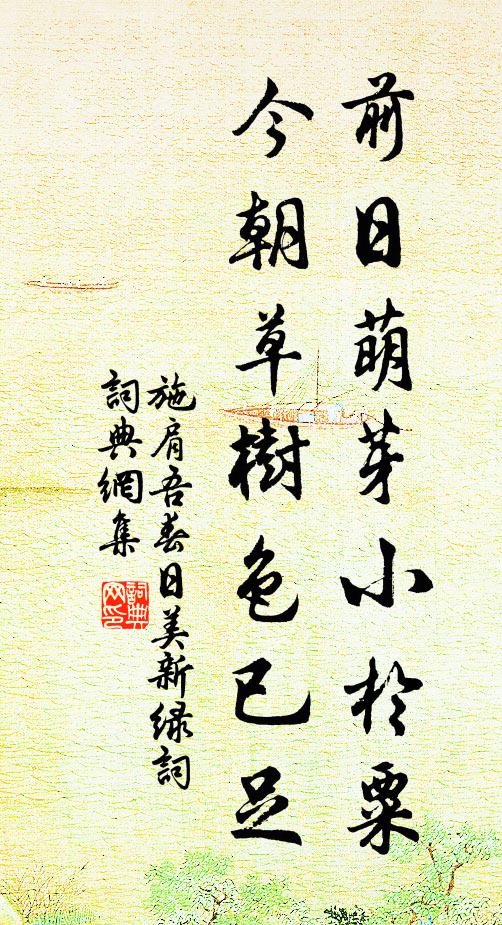 前日萌芽小於粟
今朝草樹色已足
施肩吾春日美新绿詞
詞典網集
詞典网印